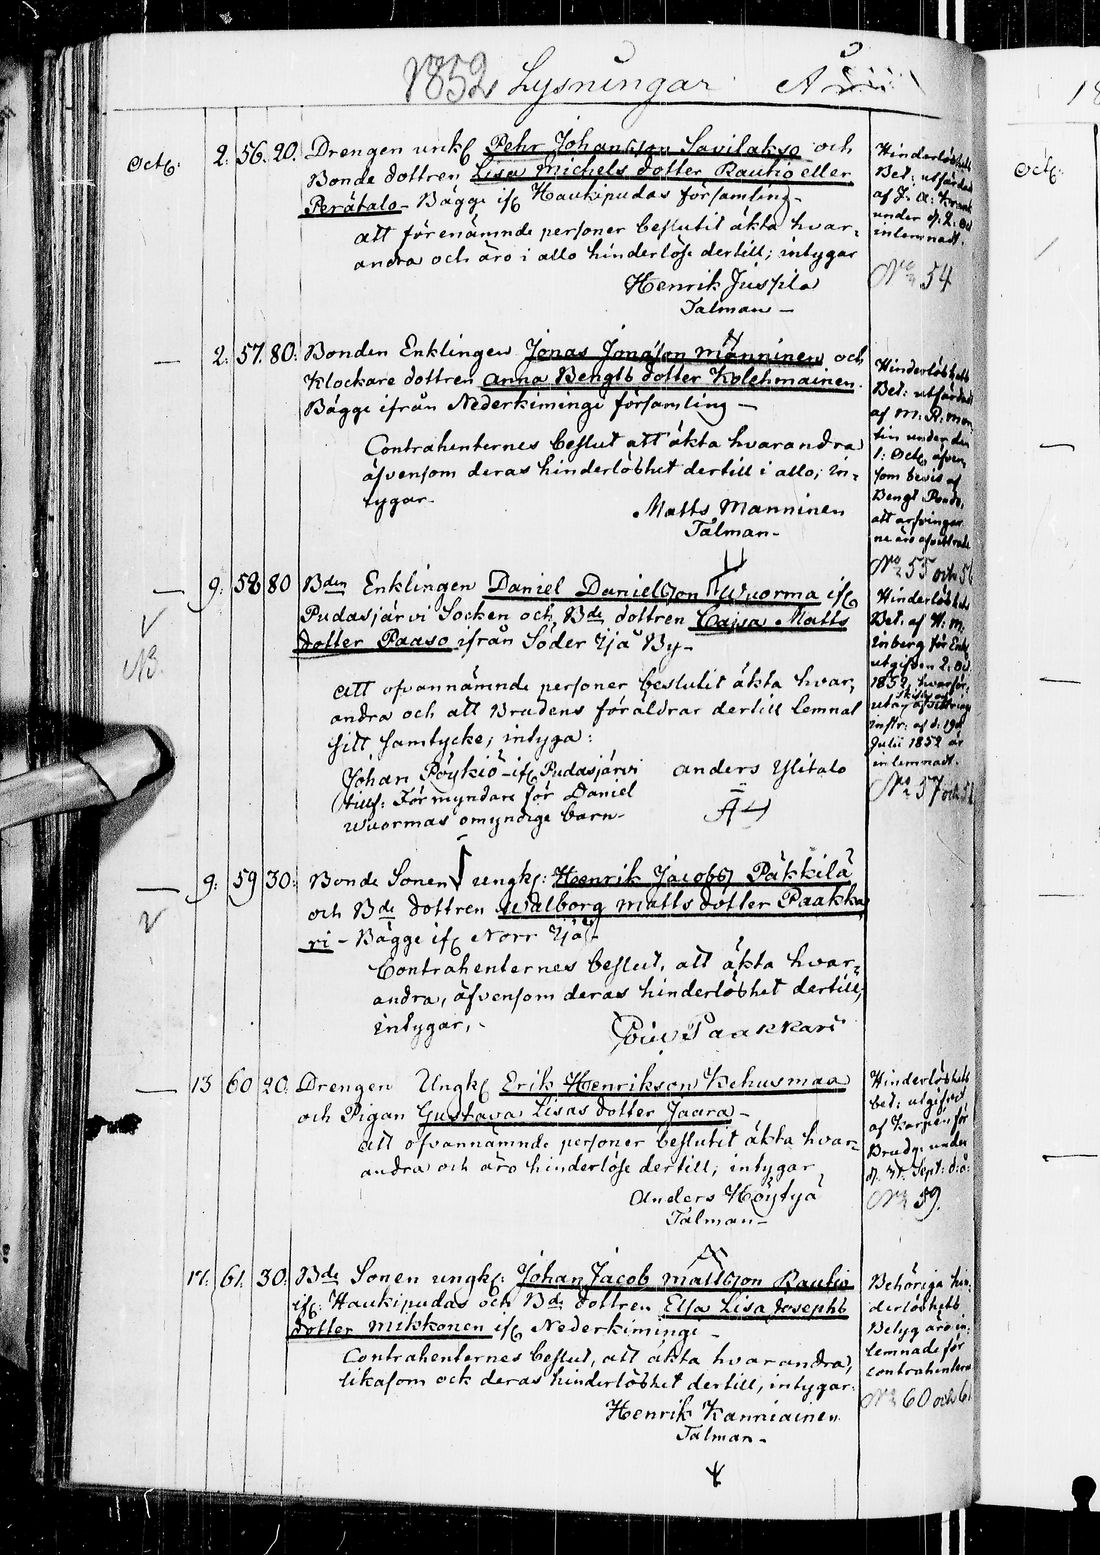 1852 Lysningar
Octb:
2. 56. 20. Drengen unkl Pehr Johansson Savilakso och
Bonde dottren Lisa Michels dotter Rautio eller
Perätalo - Bägge ifl Haukipudas församling -
att förenämnde personer beslutit äkta hvar-
andra och äro i allo hinderlöse dertill; intygar
Henrik Juspila
Talman -
Hinderlöshets
Bet: utfärdat
af J. A:
under d. 2. Oct
inlemnadt.
No 54
2. 57. 80. Bonden Enklingen Jonas Jonasson Manninen och
Klockare dottren Anna Bengts dotter Kolehmainen.
Bägge ifrån Nederkiminge församling -
Contrahenternes beslut att äkta hvarandra
äfvensom deras hinderlöshet dertill i allo; in-
tygar
Matts Manninen
Talman -
Hinderlöshets
Bet: utfärdat
af M. R. Mon
tin under den
1. Oct, äfven
som bevis af
Bengt
att arfvingar
ne äro afvittrade
No 55 och 56
9. 58 80 Bden Enklingen Daniel Danielsson Wuorma ifl
Pudasjärvi Socken och Bde dottren Cajsa Matts
dotter Paaso ifrån Söder Ijå By -
NB.
att ofvannämnde personer beslutit äkta hvar-
andra och att Brudens föräldrar dertill lemnat
sitt samtycke; intyga:
Johan Pöykiö - ifl Pudasjärvi Anders Ylitalo
tillf: Förmyndare för Daniel
Wuormas omyndige barn -
Hinderlöshets
Bet. af H. M.
Enberg för Enkl
utgifven 2. Oct
1852, hvarför-
utan afvittrings
Instr: af d. 19de
Julii 1852 är
inlemnadt.
No 57 och 58
9. 59 30. Bonde Sonen ungkl: Henrik Jacobss Päkkilä
och Bde dottren Walborg Matts dotter Paakka
ri - Bägge ifl Norr Ijå -
Contrahenternes beslut, att äkta hvar-
andra, äfvensom deras hinderlöshet dertill,
intygar, -
Paakkari
13 60 20. Drengen Ungkl Erik Henrikson Kehusmaa
och Pigan Gustava Lisas dotter Jaara -
att ofvannämnde personer beslutit äkta hvar-
andra och äro hinderlöse dertill; intygar,
Anders Höyfyä
Talman -
Hinderlöshets
bet: utgifvit
af Karpen för
Brudg: under
d. 30. Sept: d: å:
No 59.
17. 61. 30. Bde Sonen ungkl: Johan Jacob Mattsson Rautio
ifl: Haukipudas och Bde dottren Elsa Lisa Josephs
dotter Mikkonen ifl Nederkiminge -
Contrahenternes beslut, att äkta hvarandra,
likasom ock deras hinderlöshet dertill, intygar.
Henrik Kanniainen
Talman -
Behöriga hin-
derlöshets
Betyg äro in-
lemnade för
contrahenterne
No 60 och 61
18
Octb: